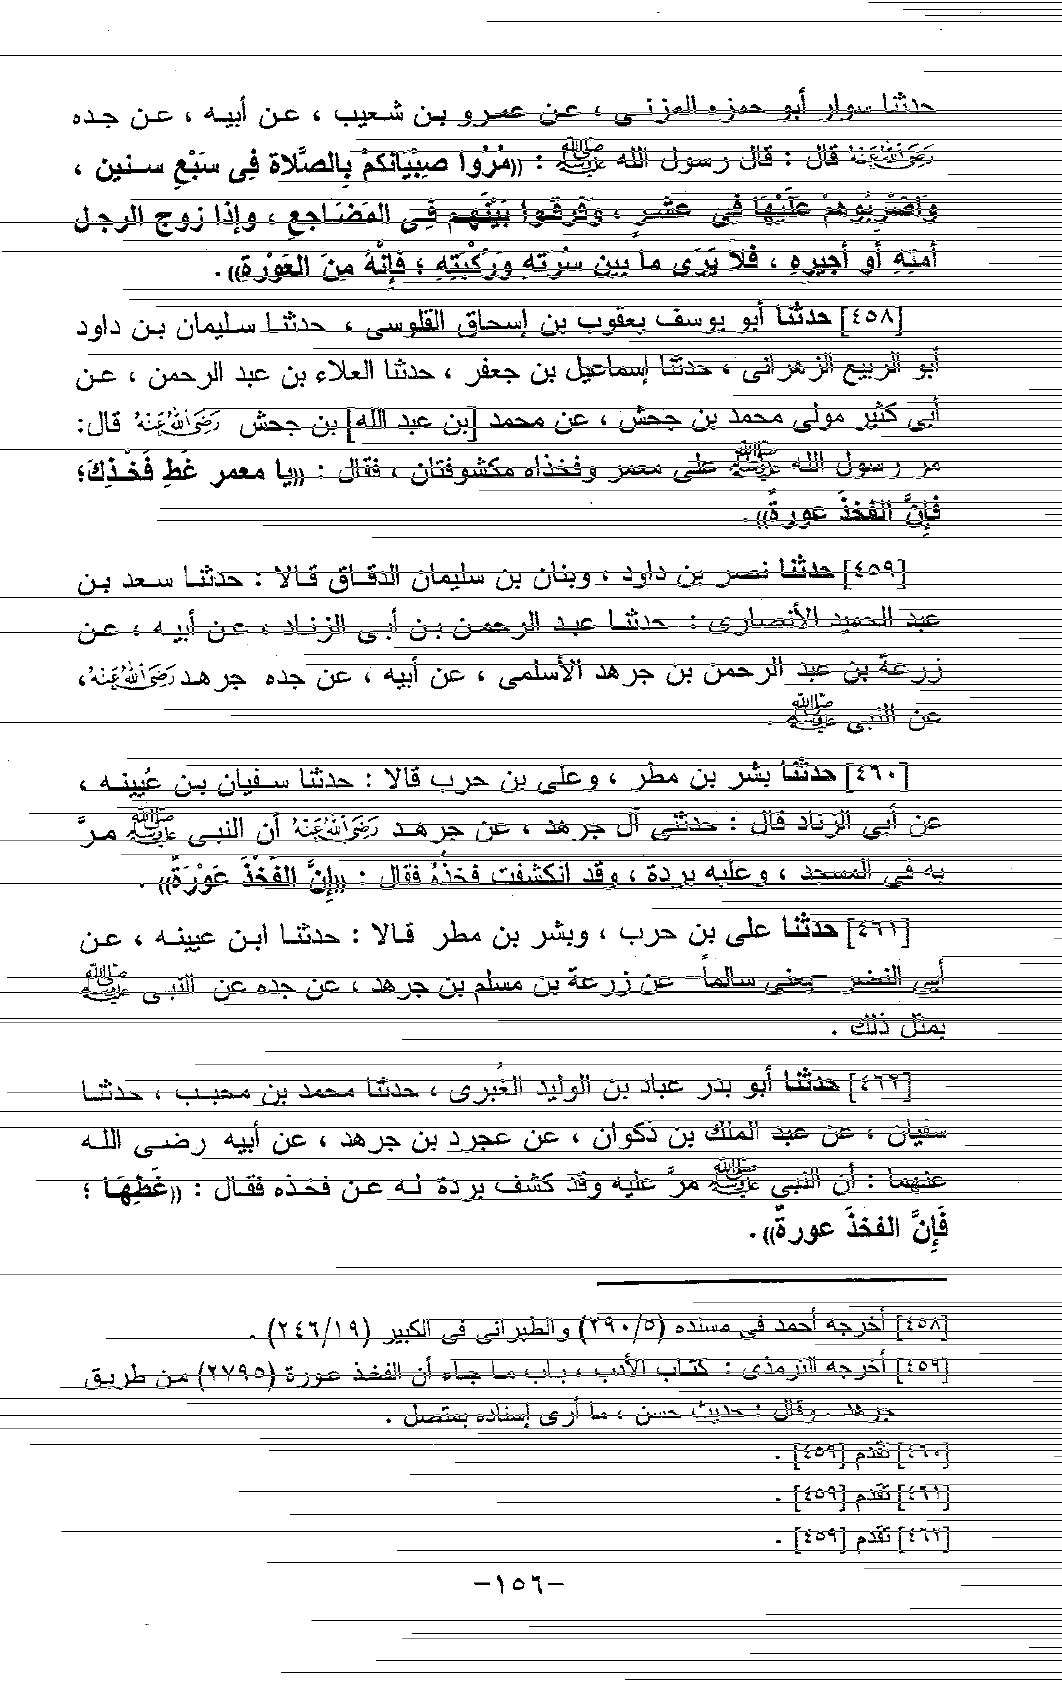 حدثنا سوار أبو حمزه المزنى ، عن عمرو بن شعيب ، عن أبيه ، عن جده
رَضِيَ اللهُ عَنْهُ قال : قال رسول الله ﷺ : ((مُرُوا صِبْيَانَكُمْ بِالصَّلاة فِى سَبْعِ سنين ،
وَاضْرِبُوهمْ عَلَيْهَا فِى عشْرٍ ، وَفَرقُوا بَيْنَهم فِى المَضَاجعِ ، وإذا زوج الرجل
أمَتِهِ أو أجيرِهِ ، فَلاَ يَرَى ما بين سُرتهِ وَرَكْبَتِهِ ؛ فَإِنَّهُ مِنَ العَوْرةِ)).
[٤٥٨] حدثنا أبو يوسف يعقوب بن إسحاق القلوسى ، حدثنا سليمان بن داود
أبو الربيع الزهرانى ، حدثنا إسماعيل بن جعفر ، حدثنا العلاء بن عبد الرحمن ، عن
أبى كثير مولى محمد بن جحش ، عن محمد [بن عبد الله] بن جحش رَضِيَ اللهُ عَنْهُ قال:
مر رسول الله ﷺ على معمر وفخذاه مكشوفتان ، فقال : ((يا معمر غَطِ فَخْذِكَ؛
فَإِنَّ الفخذَ عورةٌ)).
[٤٥٩] حدثنا نصر بن داود ، وبنان بن سليمان الدقاق قالا : حدثنا سعد بن
عبد الحميد الأنصارى : حدثنا عبد الرحمن بن أبى الزناد ، عن أبيه ، عن
زرعة بن عبد الرحمن بن جرهد الأسلمى ، عن أبيه ، عن جده جرهد رَضِيَ اللهُ عَنْهُ،
عن النبى ﷺ .
[٤٦٠] حدثنا بشر بن مطر ، وعلى بن حرب قالا : حدثنا سفيان بن عُيينه ،
عن أبى الزناد قال : حدثنى آل جرهد ، عن جرهد رَضِيَ اللهُ عَنْهُ أن النبى ﷺ مرَّ
به فى المسجد ، وعليه بردة ، وقد انكشفت فخذُهُ فقال : ((إنَّ الفَخْذَ عَوْرَةٌ)) .
[٤٦١] حدثنا على بن حرب ، وبشر بن مطر قالا : حدثنا ابن عيينه ، عن
أبى النضر -يعنى سالماً- عن زرعة بن مسلم بن جرهد ، عن جده عن النبى ﷺ
بمثل ذلك .
[٤٦٢] حدثنا أبو بدر عباد بن الوليد الغُبرى ، حدثنا محمد بن محبب ، حدثنا
سفيان ، عن عبد الملك بن ذكوان ، عن عجرد بن جرهد ، عن أبيه رضى الله
عنهما : أن النبى ﷺ مرَّ عليه وقد كشف بردة له عن فخذه فقال : ((غَطِهَا ؛
فَإِنَّ الفخذَ عورةٌ)).
[٤٥٨] أخرجه أحمد فى مسنده (٢٩٠/٥) والطبرانى فى الكبير (٢٤٦/١٩) .
[٤٥٩] أخرجه الترمذى : كتاب الأدب ، باب ما جاء أن الفخذ عورة (٢٧٩٥) من طريق
جرهد . وقال : حديث حسن ، ما أرى إسناده بمتصل .
[٤٦٠] تقدم [٤٥٩] .
[٤٦١] تقدم [٤٥٩] .
[٤٦٢] تقدم [٤٥٩] .
-١٥٦-